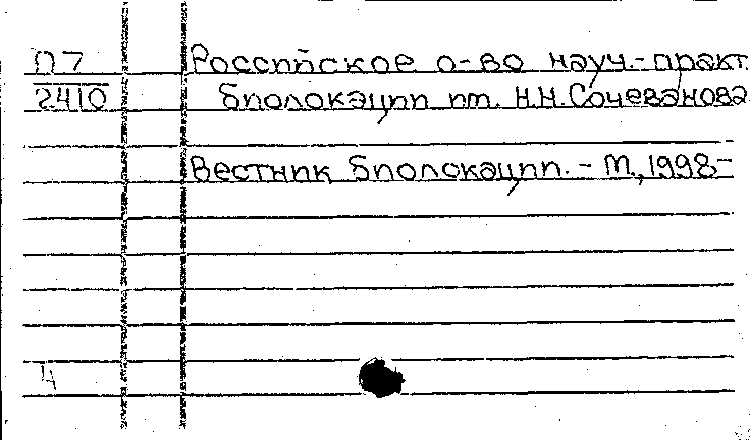 П7 Российское о-во науч.-практ.
2410 биолокации им. Н.Н.Сочеванова
Вестник биолокации. - М., 1998-
4